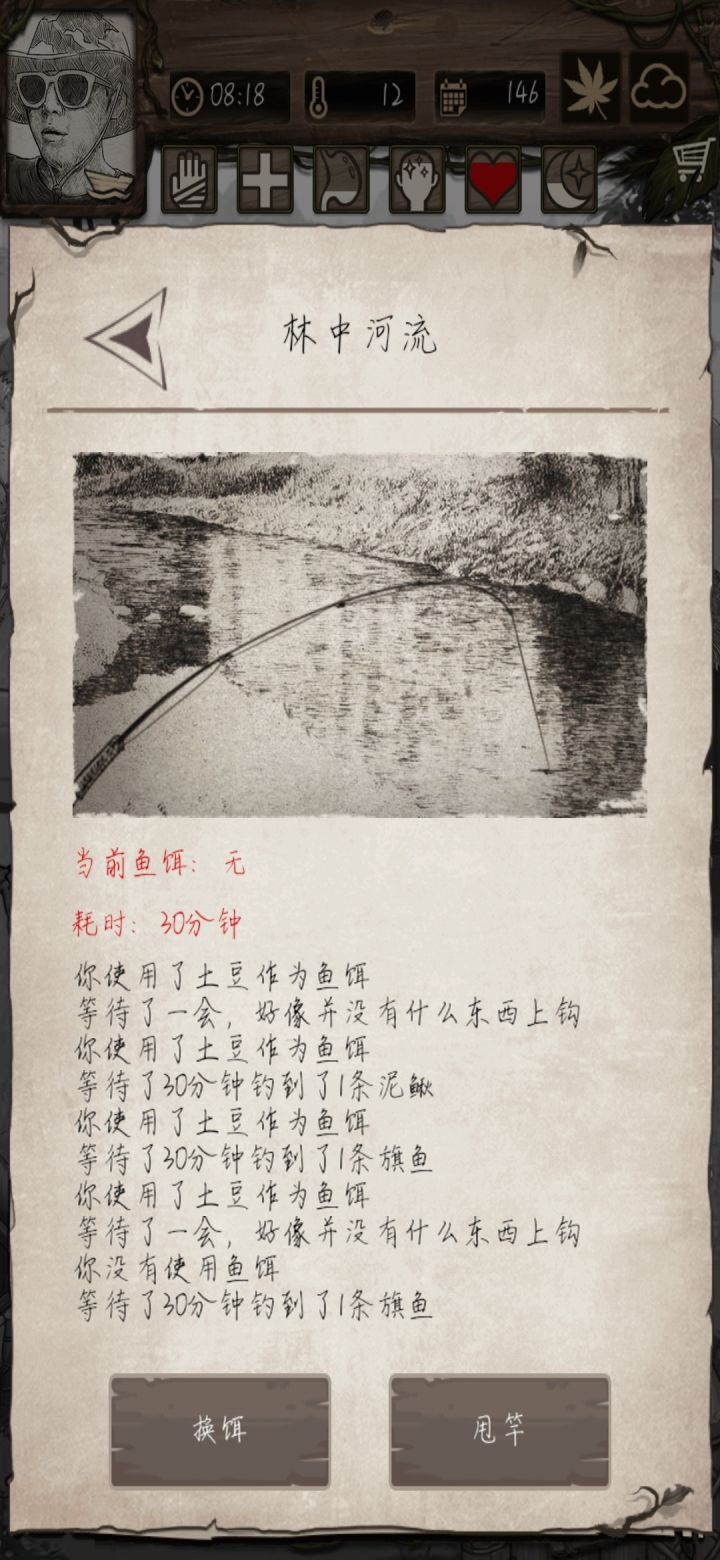 08:18
12
146
林中河流
当前鱼饵: 无
耗时: 30分钟
你使用了土豆作为鱼饵
等待了一会, 好像并没有什么东西上钩
你使用了土豆作为鱼饵
等待了30分钟钓到了1条泥鳅
你使用了土豆作为鱼饵
等待了30分钟钓到了1条旗鱼
你使用了土豆作为鱼饵
等待了一会, 好像并没有什么东西上钩
你没有使用鱼饵
等待了30分钟钓到了1条旗鱼
换饵
甩竿